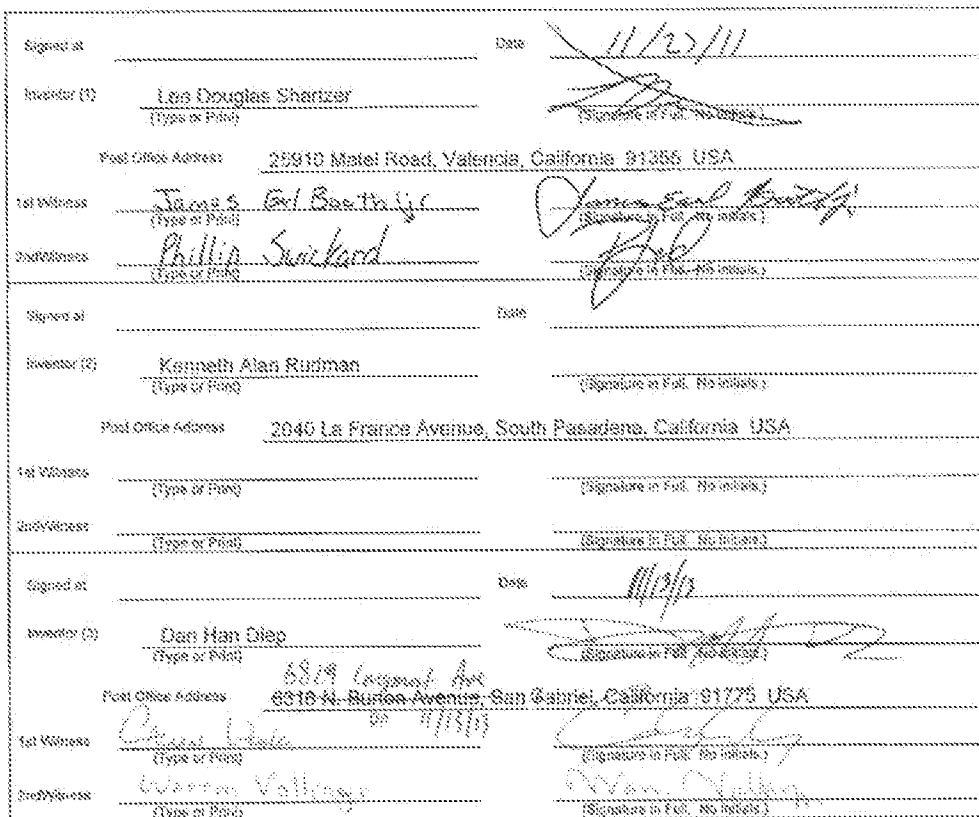 Signed at Date 11/23/11
Inventor (1) Leo Douglas Sharizer
(Type or Print) (Signature in Full. No initials.)
Post Office Address 25910 Matel Road, Valencia, California 91355 USA
1st Witness James Earl Booth Jr
(Type or Print) (Signature in Full. No initials.)
2nd Witness Phillip Swickard
(Type or Print) (Signature in Full. No initials.)
Signed at Date
Inventor (2) Kenneth Alan Rudman
(Type or Print) (Signature in Full. No initials.)
Post Office Address 2040 La France Avenue, South Pasadena, California USA
1st Witness
(Type or Print) (Signature in Full. No initials.)
2nd Witness
(Type or Print) (Signature in Full. No initials.)
Signed at Date 11/13/13
Inventor (3) Dan Han Diep
(Type or Print) (Signature in Full. No initials.)
6819 Ave
Post Office Address 6316 N. Burton Avenue, San Gabriel, California 91775 USA
11/13/13
1st Witness
(Type or Print) (Signature in Full. No initials.)
2nd Witness Warren
(Type or Print) (Signature in Full. No initials.)